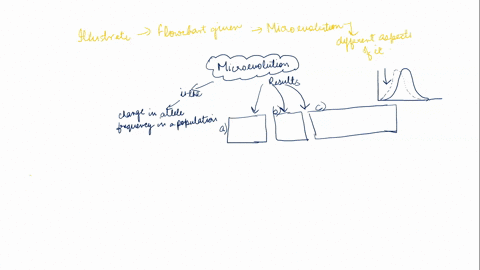 Illustrate → Flowchart given → Microevolution
different aspects
of it
Microevolution
is the
Results
change in allele
frequency in a population
a)
b)
c)